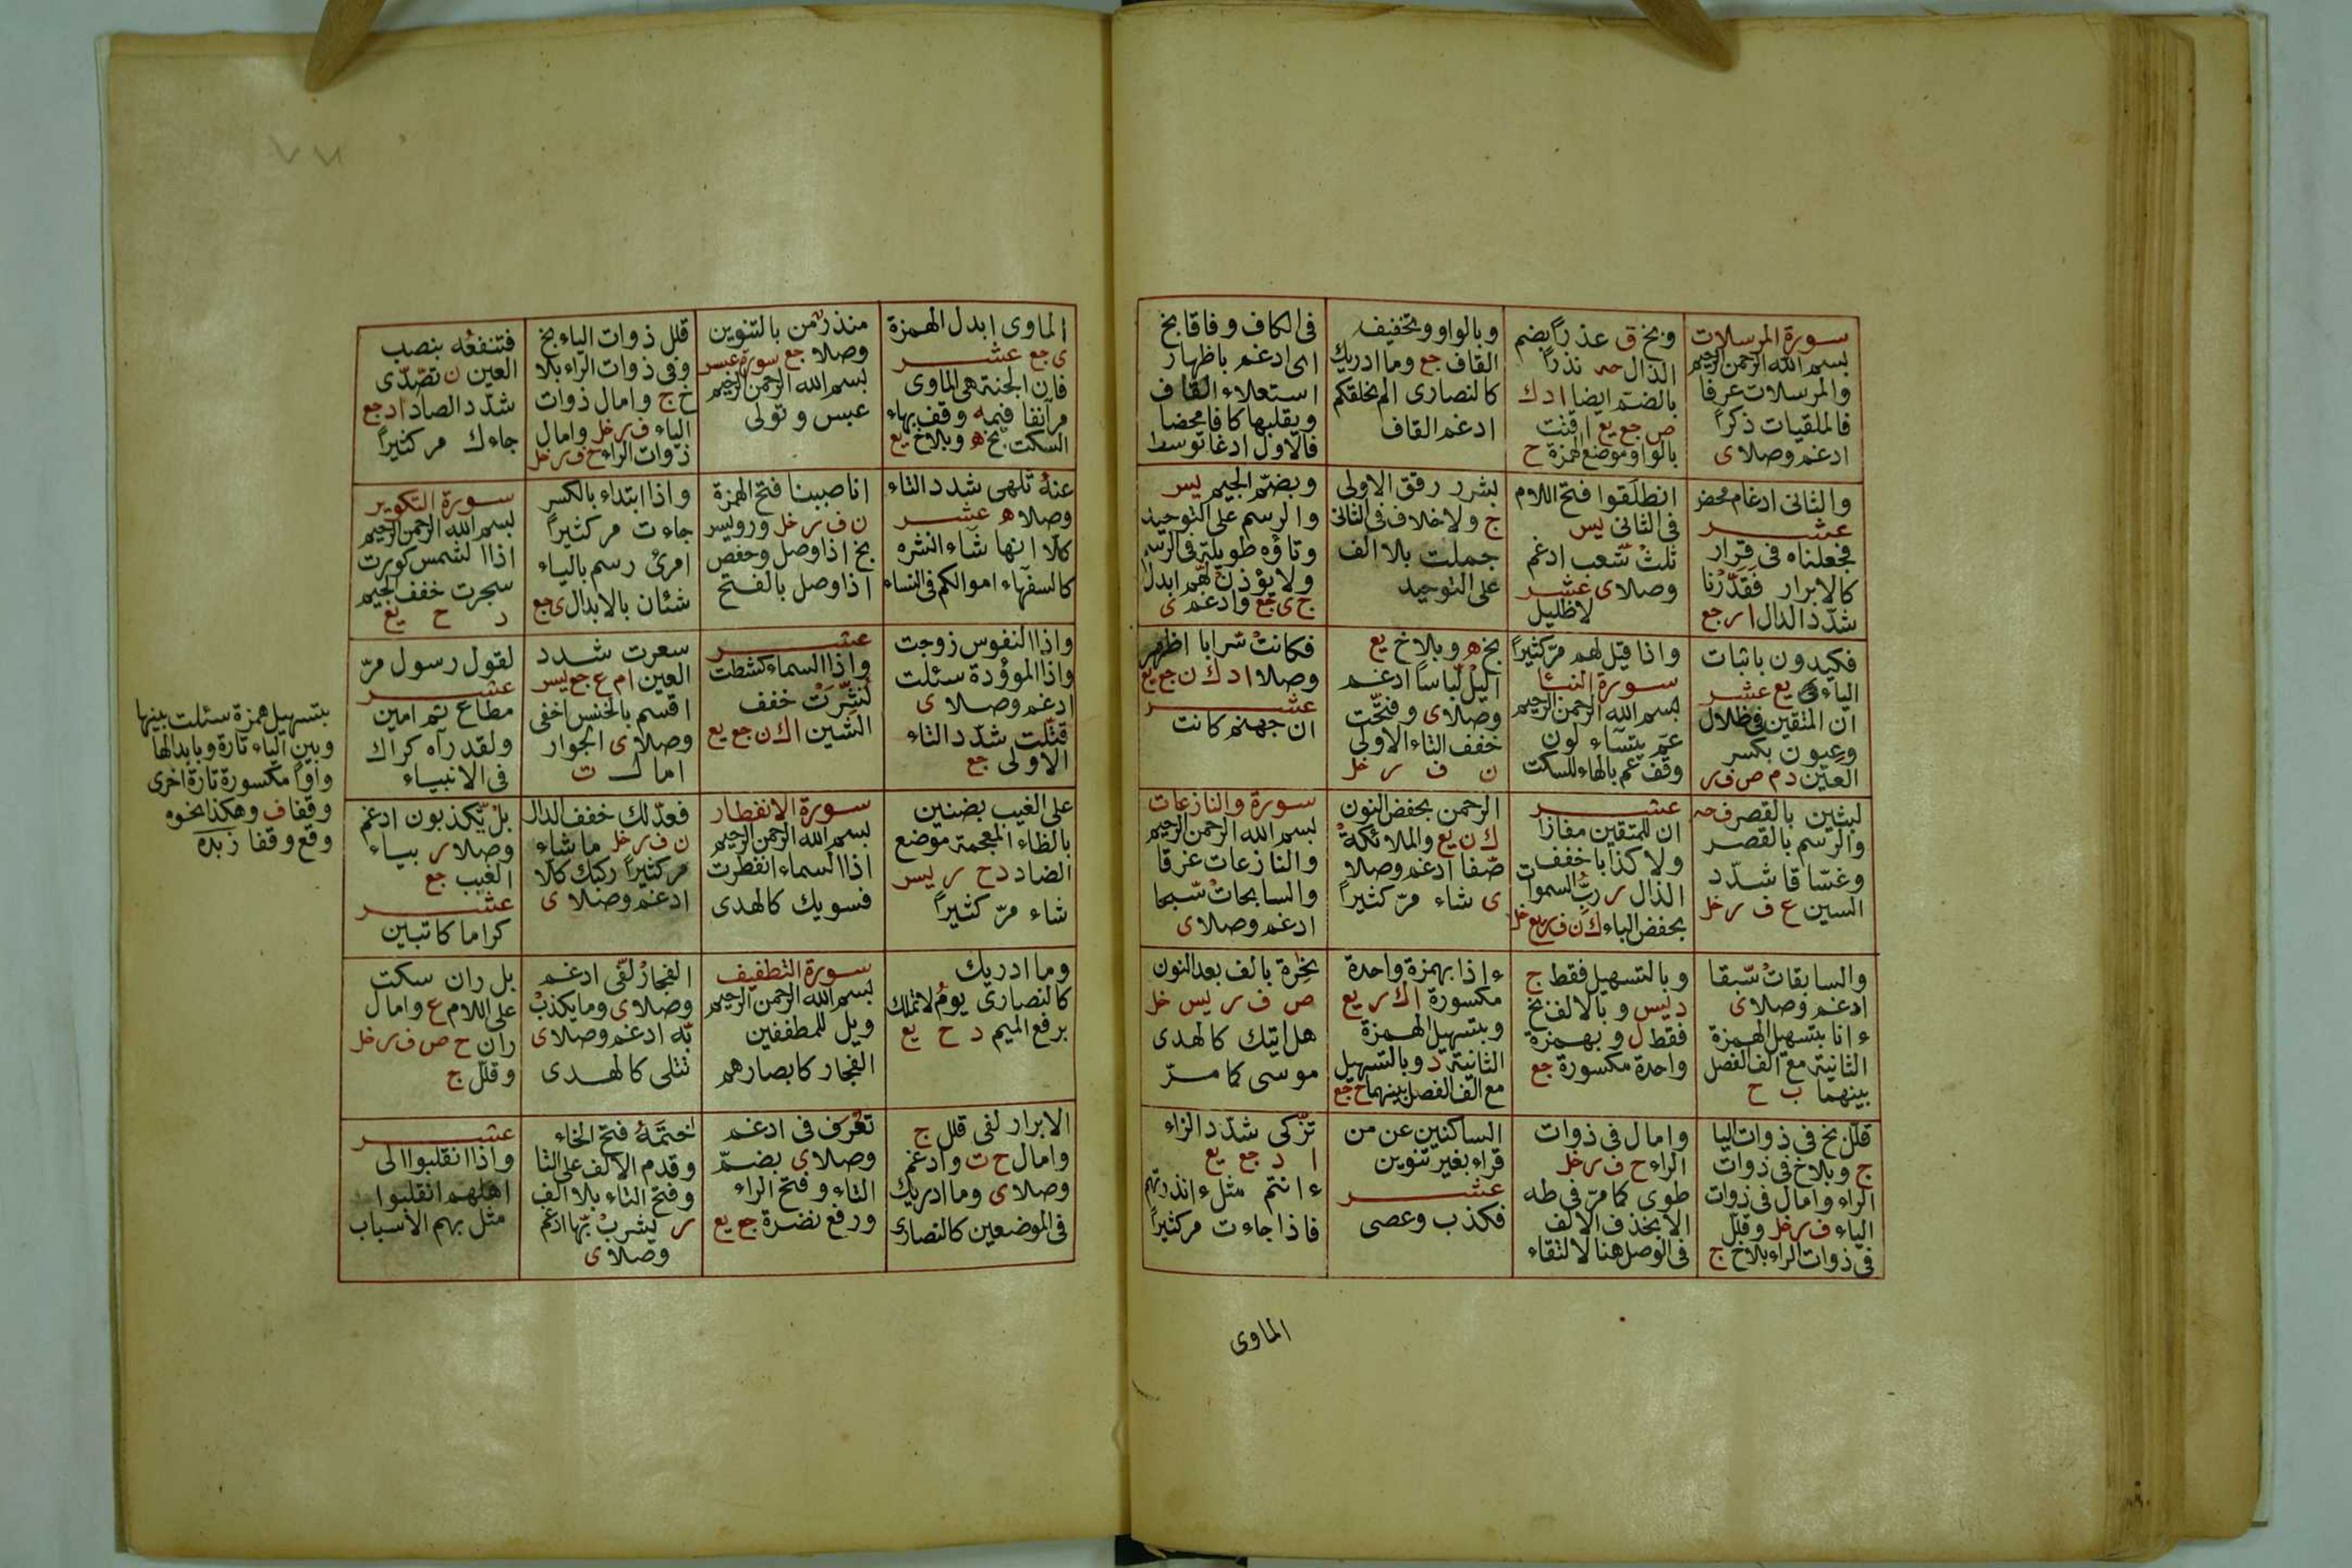 سورة المرسلات
بسم الله الرحمن الرحيم
والمرسلات عرفا
فالملقيات ذكرا
ادغم وصلا ى
وبخ ق عذرا بضم
الذال حه نذرا
بالضم ايضا ا د ك
ص جع يع اقتت
بالواو موضع الهمزة ح
وبالواو وتخفيف
القاف جع وما ادريك
كالنصارى الم نخلقكم
ادغم القاف
فى الكاف وفاقا بخ
اى ادغم باظهار
استعلاء القاف
وبقلبها كافا محضا
فالاول ادغا توسط
والثانى ادغام محض
عشر
فجعلناه فى قرار
كالابرار فقدرنا
شدد الدال ا ر جع
انطلقوا فتح اللام
فى الثانى يس
ثلث شعب ادغم
وصلا ى عشر
لا ظليل
بشرر رقق الاولى
ج ولا خلاف فى الثانى
جملت بلا الف
على التوحيد
وبضم الجيم يس
والرسم على التوحيد
وتاؤه طويلة فى الرسم
ولا يؤذن لهم ابدل
ج ى جع وادغم ى
فكيدون باثبات
الياء يع عشر
ان المتقين فى ظلال
وعيون بكسر
العين د م ص ف ر
واذا قيل لهم مر كثيرا
سورة النبا
بسم الله الرحمن الرحيم
عم يتساء لون
وقف عم بالهاء للسكت
بخ ه وبلا خ يع
اليل لباسا ادغم
وصلا ى وفتحت
خفف التاء الاولى
ن ف ر خل
فكانت سرابا اظهر
وصلا ا د ك ن جع يع
عشر
ان جهنم كانت
لبثين بالقصر ف حه
والرسم بالقصر
وغساقا شدد
السين ع ف ر خل
عشر
ان للمتقين مفازا
ولا كذابا خفف
الذال ر رب السموات
بخفض الباء ك ن ف ر يع خل
الرحمن بخفض النون
ك ن يع والملائكة
صفا ادغم وصلا
ى شاء مر كثيرا
سورة والنازعات
بسم الله الرحمن الرحيم
والنازعات غرقا
والسابحات سبحا
ادغم وصلا ى
والسابقات سبقا
ادغم وصلا ى
ء انا بتسهيل الهمزة
الثانية مع الف الفصل
بينهما ب ح
وبالتسهيل فقط ج
د يس وبالالف بخ
فقط ل وبهمزة
واحدة مكسورة جع
ء اذا بهمزة واحدة
مكسورة ا ك ر يع
وبتسهيل الهمزة
الثانية د وبالتسهيل
مع الف الفصل بينهما ح جع
نخرة بالف بعد النون
ص ف ر يس خل
هل اتيك كالهدى
موسى كما مر
قلل بخ فى ذوات اليا
ج وبلا خ فى ذوات
الراء وامال فى ذوات
الياء ف ر خل وقلل
فى ذوات الراء بلا خ ج
وامال فى ذوات
الراء ح ف ر خل
طوى كما مر فى طه
الا بحذف الالف
فى الوصل هنا لالتقاء
الساكنين عن من
قراء بغير تنوين
عشر
فكذب وعصى
تزكى شدد الزاء
ا د جع يع
ء انتم مثل ء انذرتهم
فاذا جاءت مر كثيرا
الماوى
الماوى ابدل الهمزة
ى جع عشر
فان الجنة هى الماوى
مر آنفا فيمه وقف بهاء
السكت بخ ه وبلا خ يع
منذر من بالتنوين
وصلا جع سورة عبس
بسم الله الرحمن الرحيم
عبس وتولى
قلل ذوات الياء بخ
وفى ذوات الراء بلا
خ ج وامال ذوات
الياء ف ر خل وامال
ذوات الراء ح ف ر خل
فتنفعه بنصب
العين ن تصدى
شدد الصاد ا د جع
جاءك مر كثيرا
عنه تلهى شدد التاء
وصلا ه عشر
كلا انها شاء انشره
كالسفهاء اموالكم فى النساء
انا صببنا فتح الهمزة
ن ف ر خل ورويس
بخ اذا وصل وخفض
اذا وصل بالفتح
واذا ابتداء بالكسر
جاءت مر كثيرا
امرئ رسم بالياء
شئان بالابدال ى جع
سورة التكوير
بسم الله الرحمن الرحيم
اذا الشمس كورت
سجرت خفف الجيم
د ح يع
واذا النفوس زوجت
واذا الموؤدة سئلت
ادغم وصلا ى
قتلت شدد التاء
الاولى جع
عشر
واذا السماء كشطت
نشرت خفف
الشين ا ك ن جع يع
سعرت شدد
العين ا م ع جع يس
اقسم بالخنس اخفى
وصلا ى الجوار
امال ت
لقول رسول مر
عشر
مطاع ثم امين
ولقد رآه كراك
فى الانبياء
على الغيب بضنين
بالظاء المعجمة موضع
الضاد د ح ر يس
شاء مر كثيرا
سورة الانفطار
بسم الله الرحمن الرحيم
اذا السماء انفطرت
فسويك كالهدى
فعدلك خفف الدال
ن ف ر خل ما شاء
مر كثيرا ركبك كلا
ادغم وصلا ى
بل تكذبون ادغم
وصلا ر بياء
الغيب جع
عشر
كراما كاتبين
وما ادريك
كالنصارى يوم لا تملك
برفع الميم د ح يع
سورة التطفيف
بسم الله الرحمن الرحيم
ويل للمطففين
الفجار كابصارهم
الفجار لفى ادغم
وصلا ى وما يكذب
به ادغم وصلا ى
تتلى كالهدى
بل ران سكت
على اللام ع وامال
ران ح ص ف ر خل
وقلل ج
الابرار لفى قلل ج
وامال ح ت وادغم
وصلا ى وما ادريك
فى الموضعين كالنصارى
تعرف فى ادغم
وصلا ى بضم
التاء وفتح الراء
ورفع نضرة جع يع
ختمه فتح الخاء
وقدم الالف على التا
وفتح التاء بلا الف
ر يشرب بها ادغم
وصلا ى
عشر
واذا انقلبوا الى
اهلهم انقلبوا
مثل بهم الاسباب
بتسهيل همزة سئلت بينها
وبين الياء تارة وبابدالها
واوا مكسورة تارة اخرى
وقفا ف وهكذا نحوه
وقع وقفا زبده